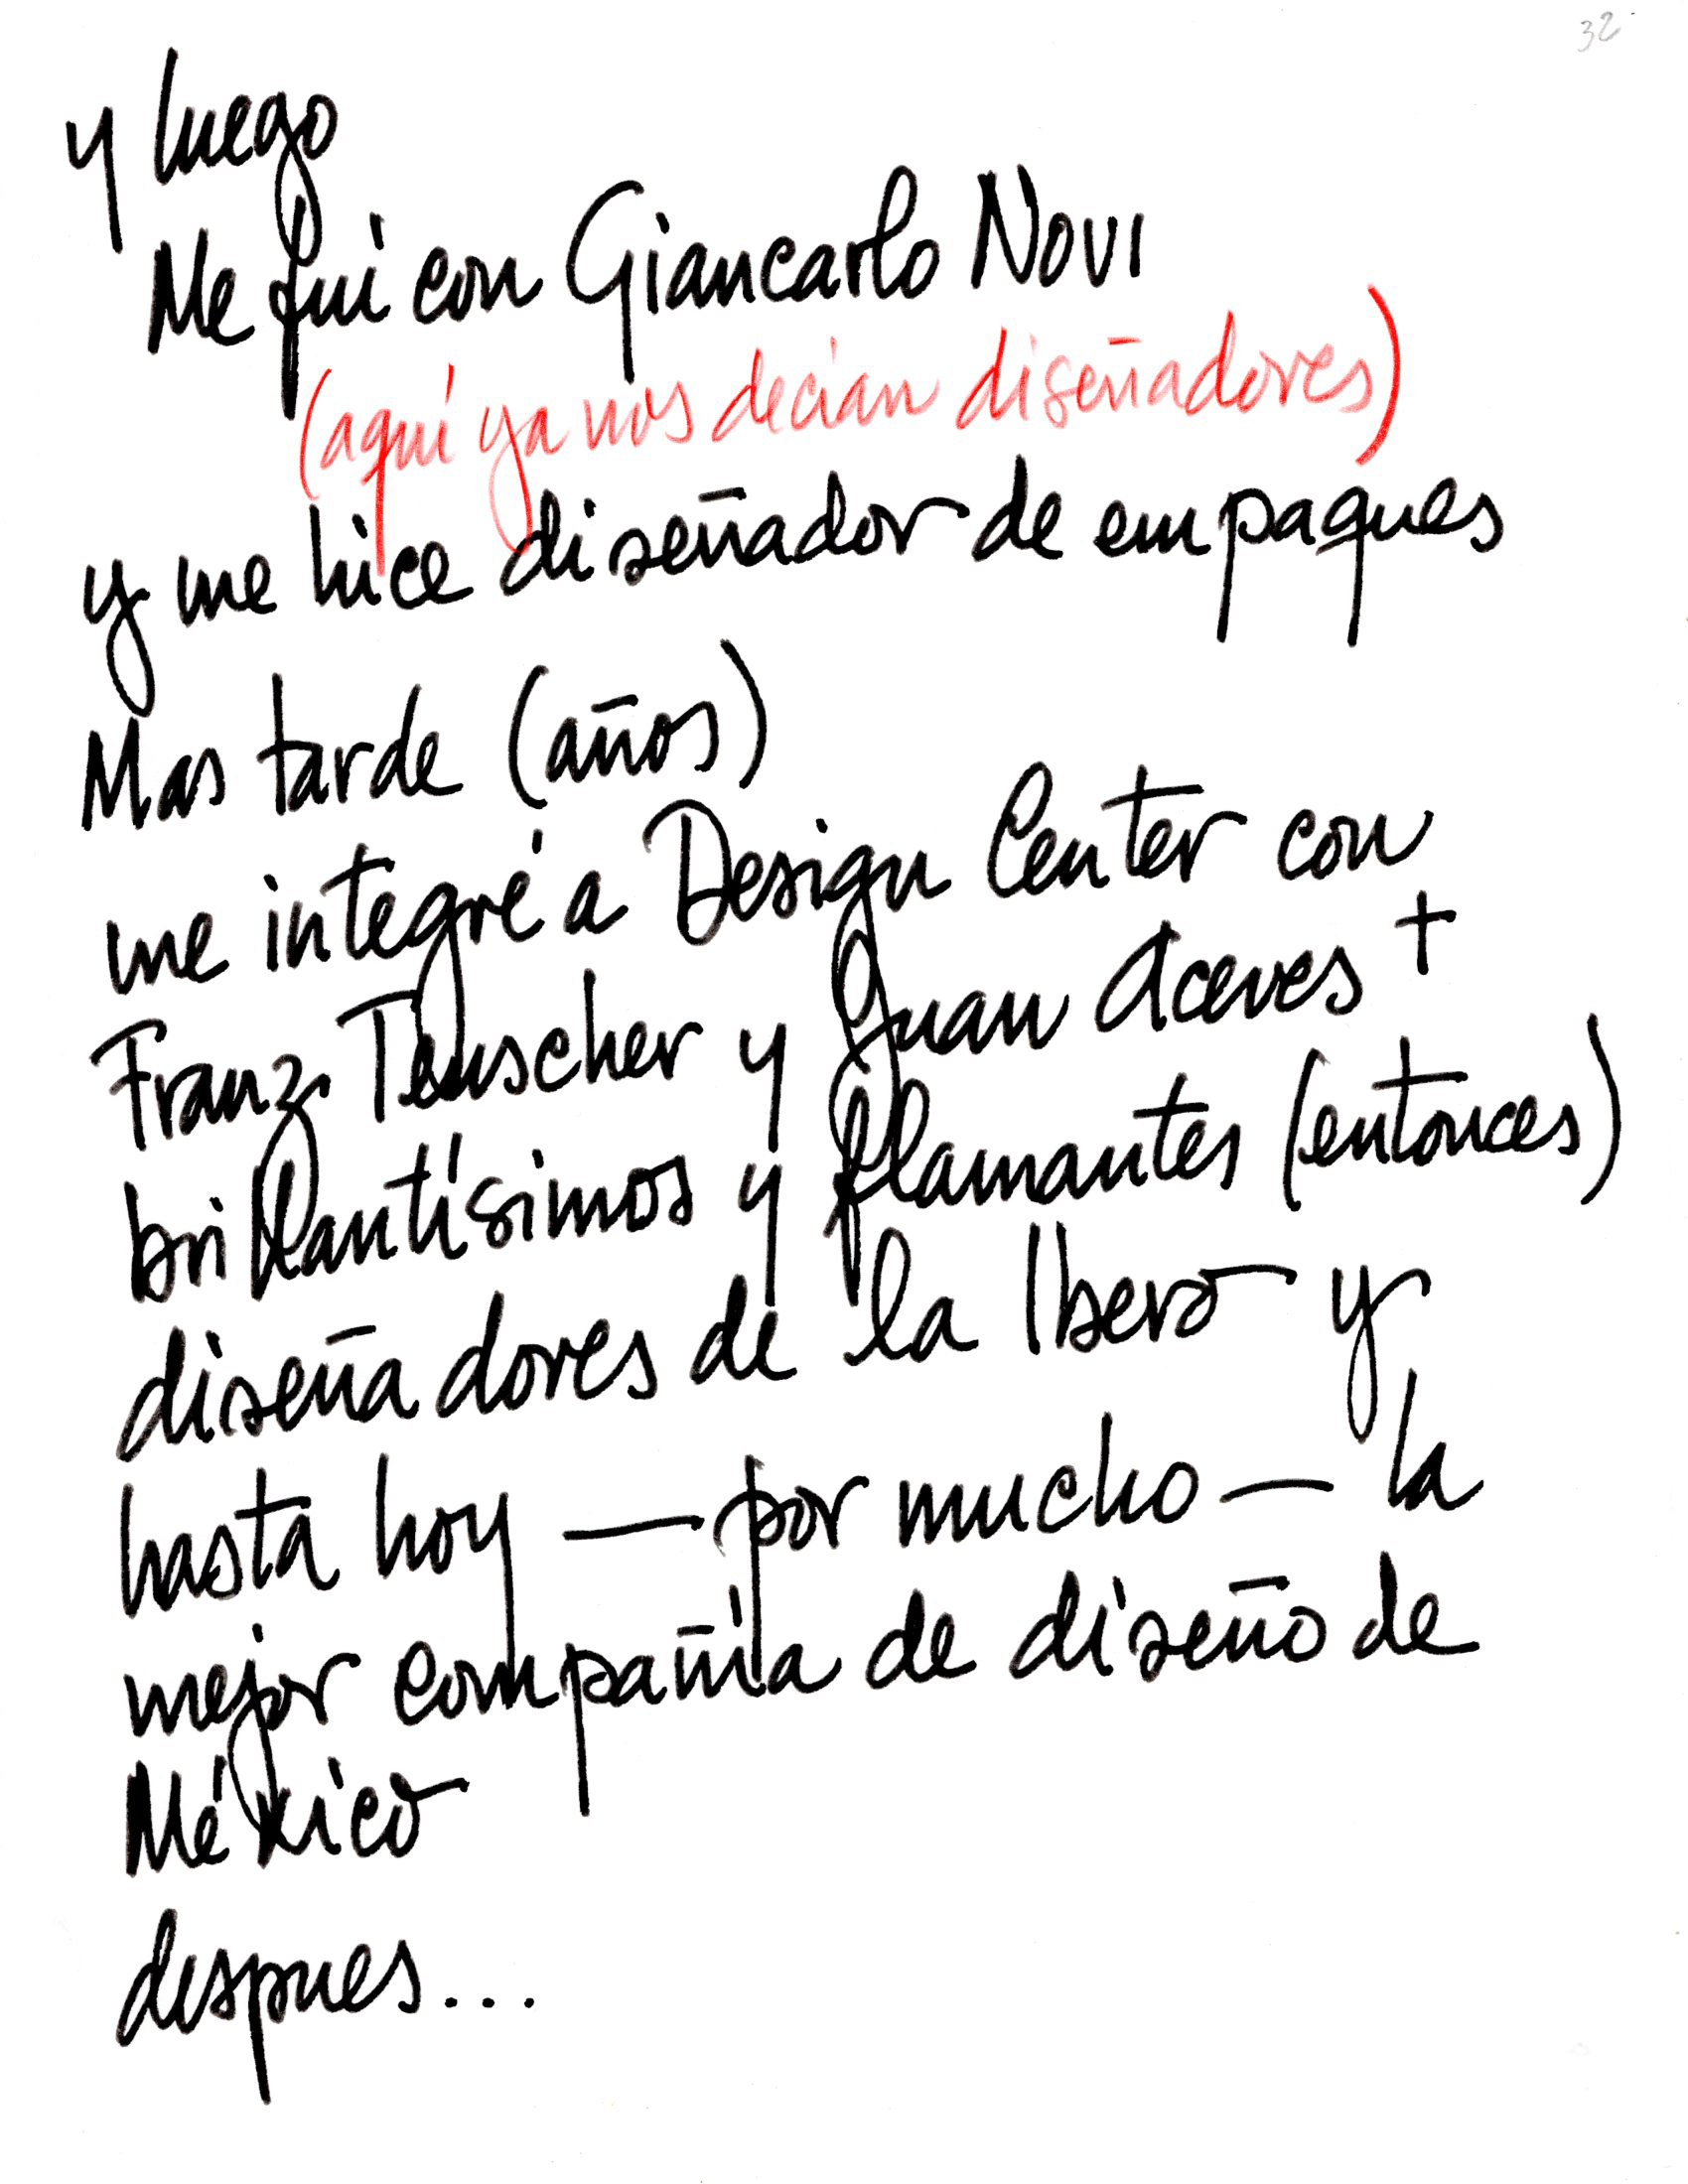 32
y luego
Me fui con Giancarlo Novi
(aquí ya nos decian diseñadores)
y me hice diseñador de empaques
Mas tarde (años)
me integré a Design Center con
Franz Teuscher y Juan Aceves +
brillantísimos y flamantes (entonces)
diseñadores de la Ibero y
hasta hoy — por mucho — la
mejor compañía de diseño de
México
despues...